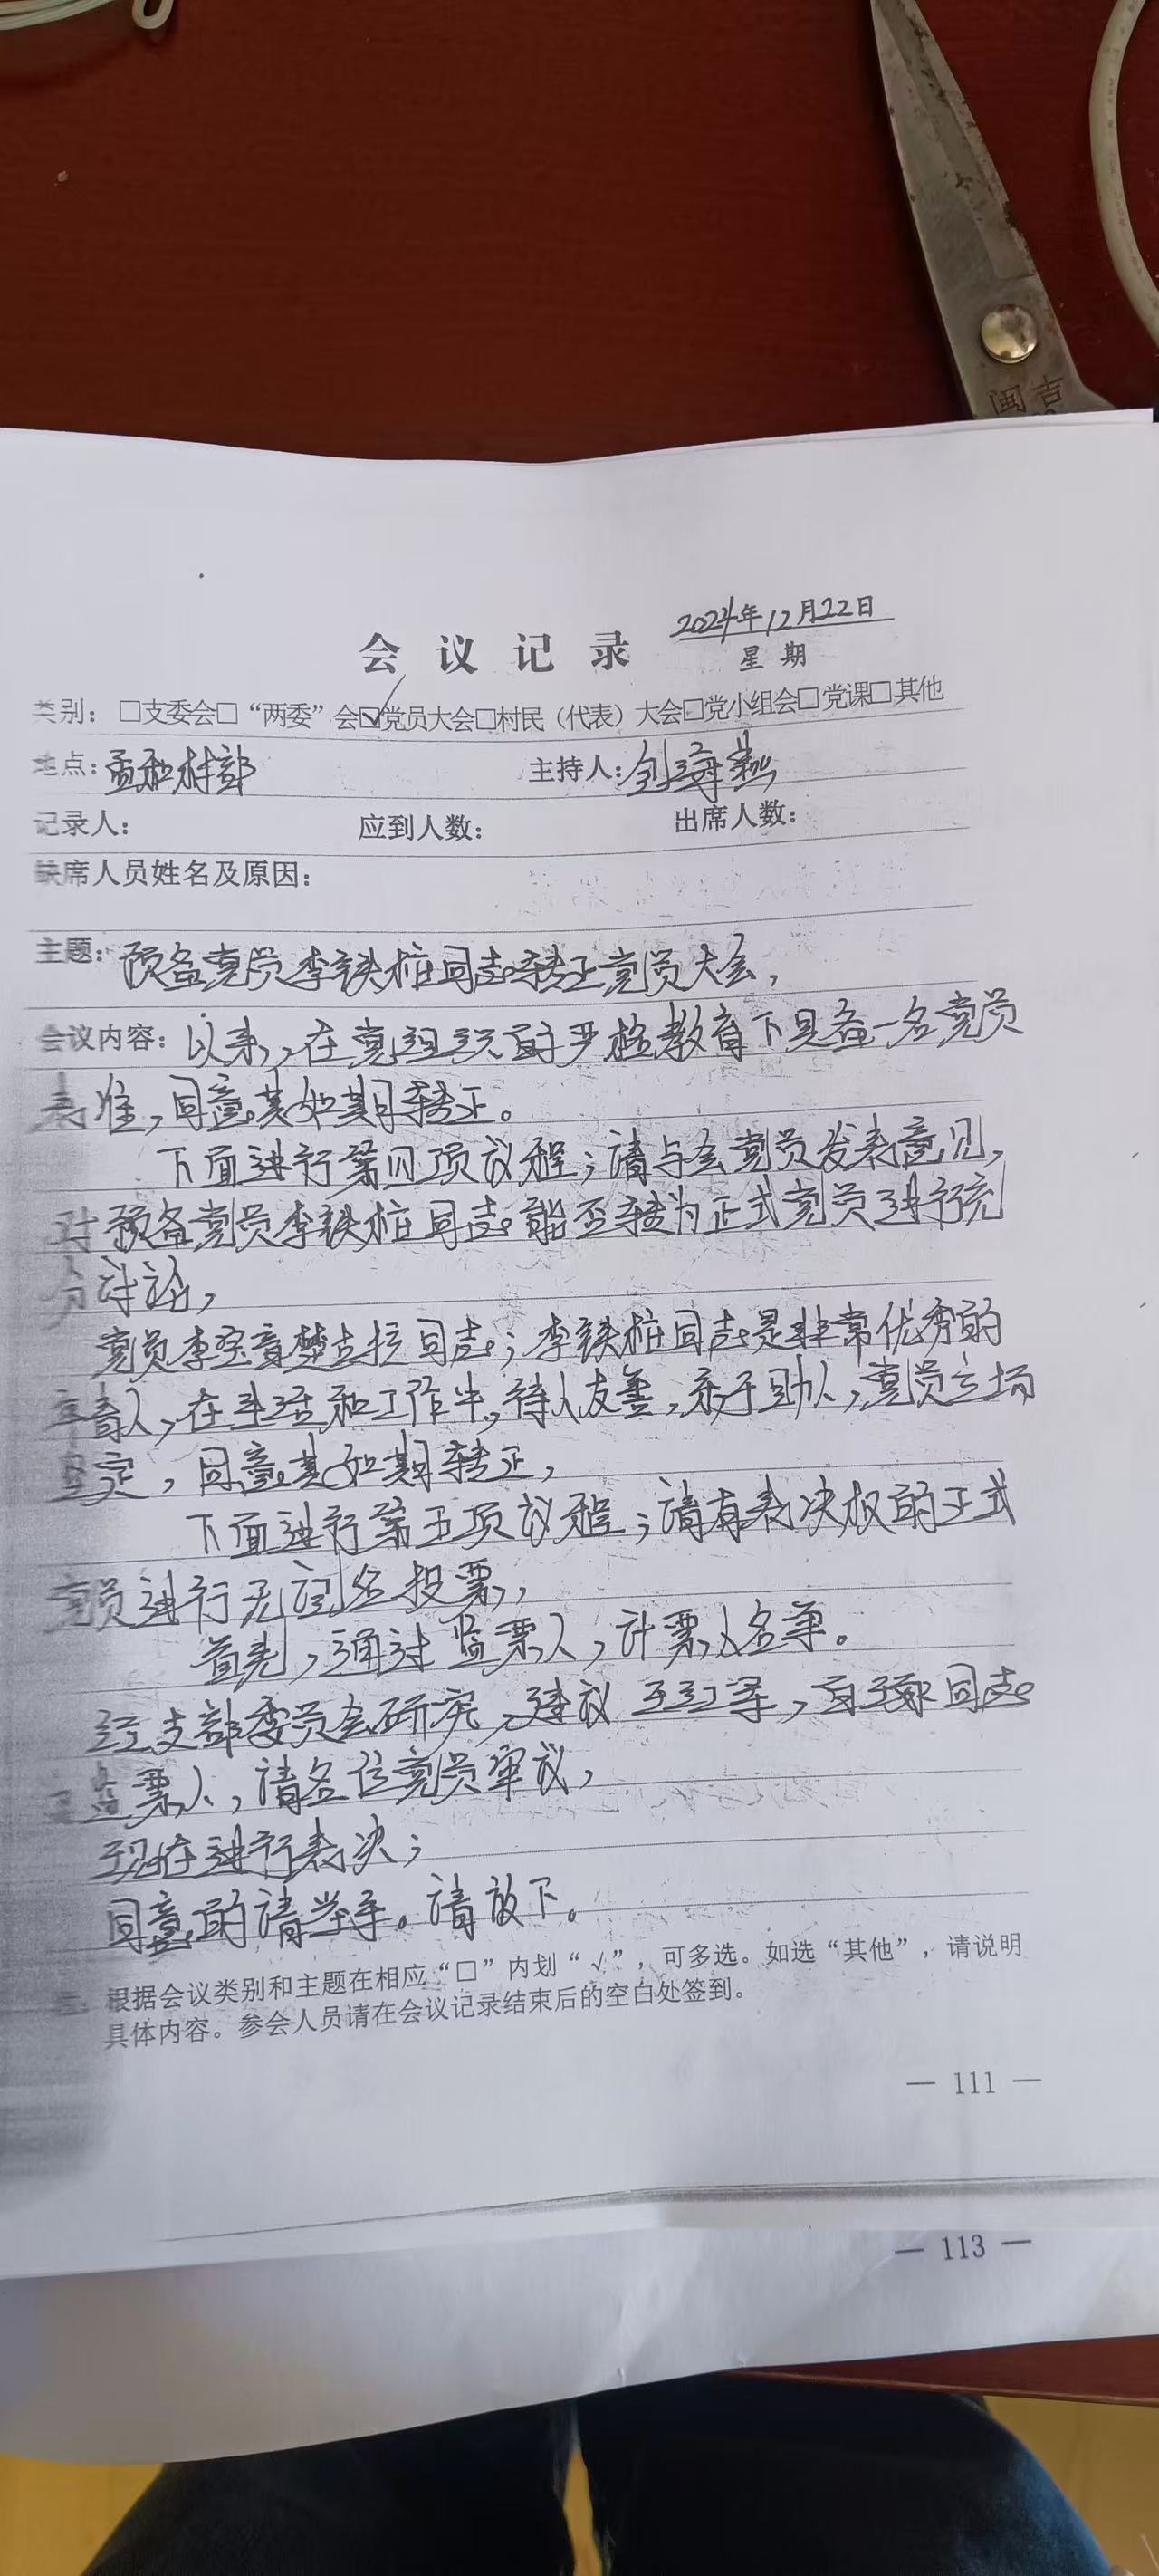 闽吉
2024年12月22日
会议记录
星期
类别：□支委会□“两委”会☑党员大会□村民（代表）大会□党小组会□党课□其他
地点：孟和村部 主持人：刘海燕
记录人： 应到人数： 出席人数：
缺席人员姓名及原因：
主题：预备党员李铁桩同志转正党员大会，
会议内容：以来，在党组织的严格教育下具备一名党员
标准，同意其如期转正。
下面进行第四项议程；请与会党员发表意见，
对预备党员李铁桩同志能否转为正式党员进行充
分讨论，
党员李宝音 同志；李铁桩同志是非常优秀的
年青人，在生活和工作中，待人友善，乐于助人，党员立场
坚定，同意其如期转正，
下面进行第五项议程；请有表决权的正式
党员进行无记名投票，
首先，通过监票人，计票人名单。
经支部委员会研究，建议 同志
监票人，请各位党员审议，
现在进行表决；
同意的请举手。请放下。
注：根据会议类别和主题在相应“□”内划“√”，可多选。如选“其他”，请说明
具体内容。参会人员请在会议记录结束后的空白处签到。
— 111 —
— 113 —